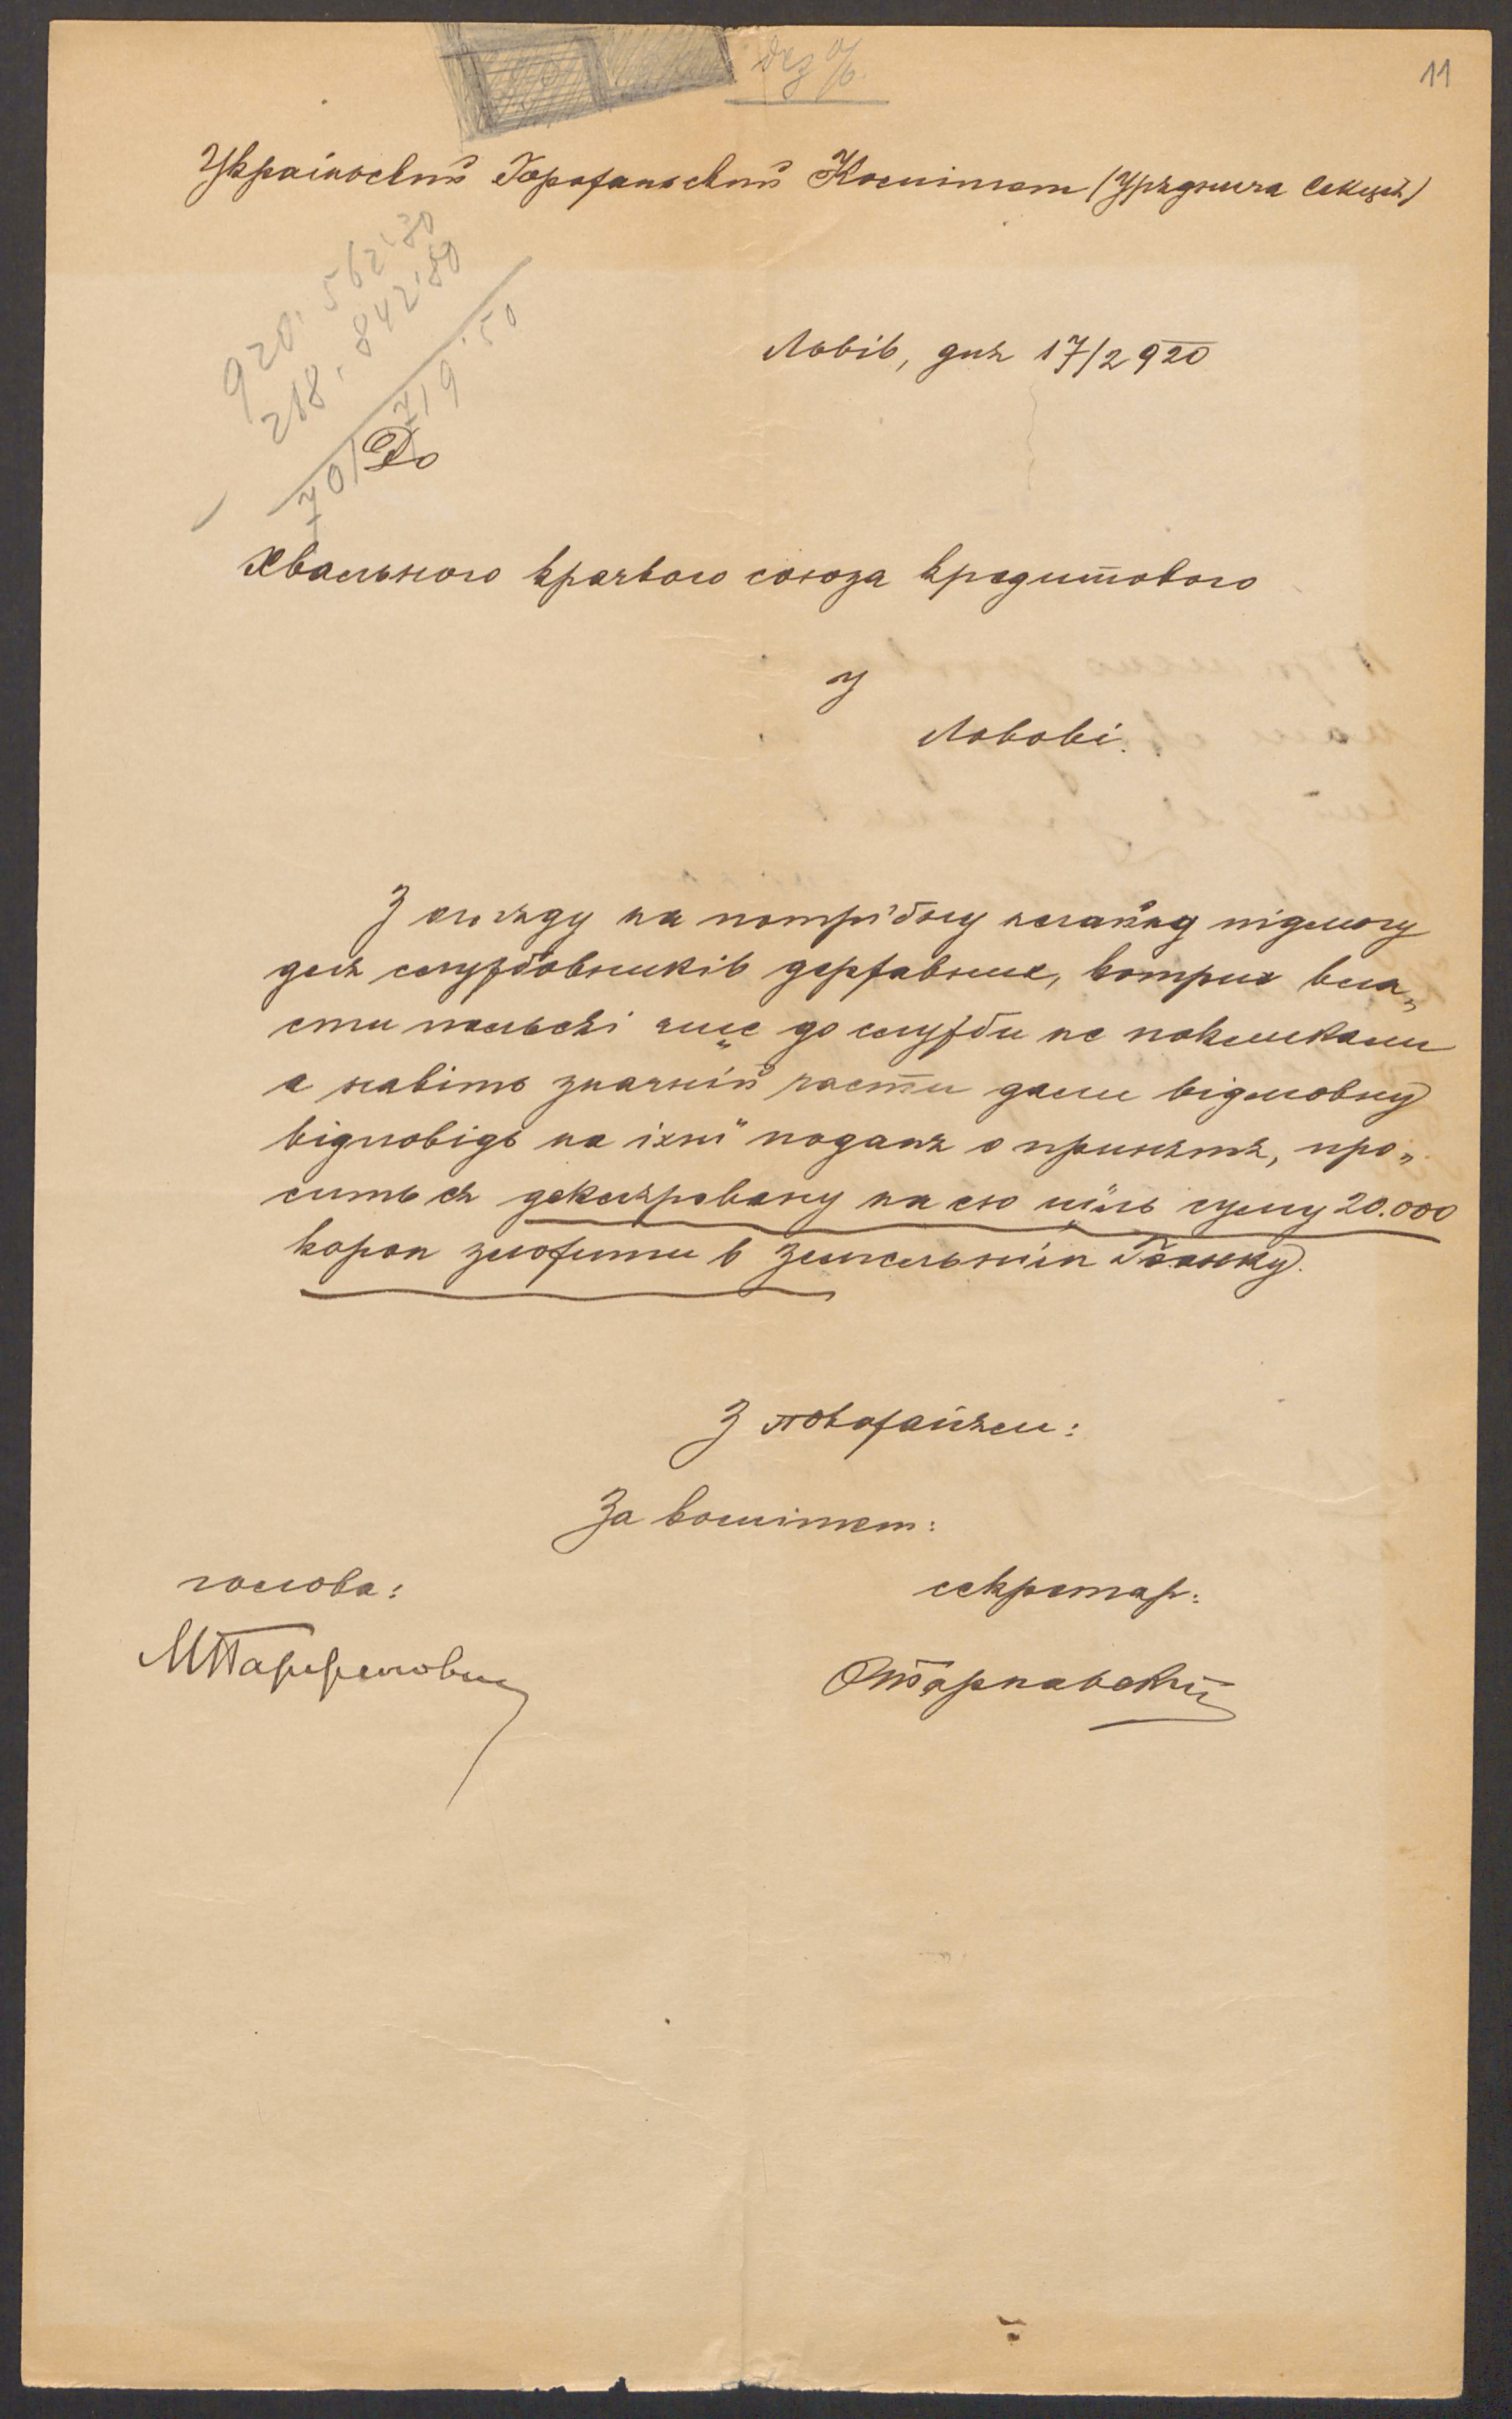 11
Український Горожаньский Комітет (Уряднича Секция)
920. 562'30
218. 842'80
701 719'50
Львів, дня 17/2 920
До
Хвального краєвого союза кредитового
у
Львові.
З огляду на потрібну негайну підмогу
для службовників державних, котрих вла„
сти польскі ще до служби не покликали
а навіть значній части дали відмовну
відповідь на їхні поданя о принятя, про„
сить ся деклярована на сю ціль суму 20.000
корон зложити в Земельнім Банку.
З поважанєм:
За комітет:
голова:
секретар: